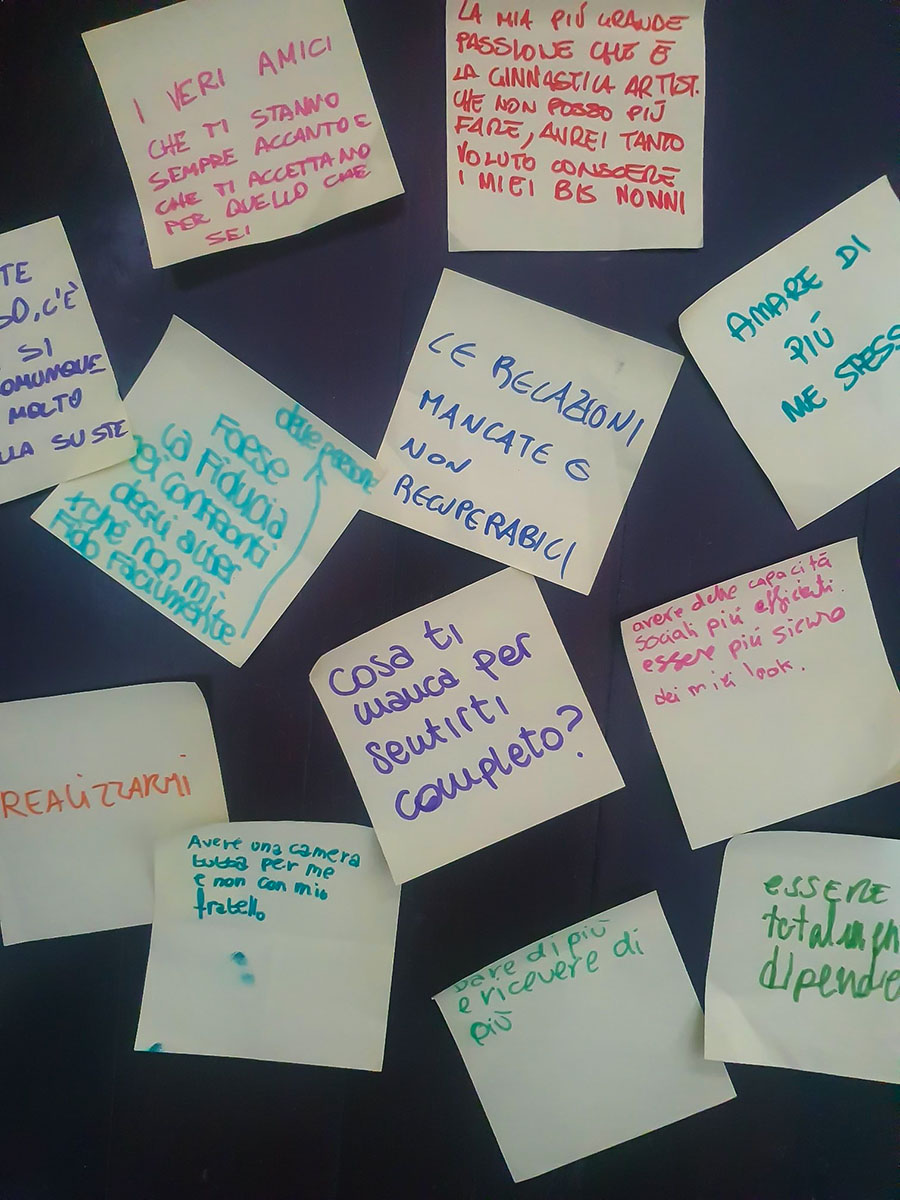 I VERI AMICI
CHE TI STANNO
SEMPRE ACCANTO E
CHE TI ACCETTANO
PER QUELLO CHE
SEI
LA MIA PIÚ GRANDE
PASSIONE CHE È
LA GINNASTICA ARTIST.
CHE NON POSSO PIÚ
FARE, AVREI TANTO
VOLUTO CONSCERE
I MIEI BIS NONNI
TE
SO, C'È
SI
COMUNQUE
MOLTO
LLA SU STE
FORSE
LA FIDUCIA
NEI CONFRONTI
DEGLI ALTER
XCHÉ NON MI
FIDO FACILMENTE
delle persone
LE RELAZIONI
MANCATE E
NON
RECUPERABILI
AMARE DI
PIÚ
ME STESS
Cosa ti
manca per
sentirti
completo?
avere delle capacitá
sociali piú efficienti.
essere piú sicuro
dei miei look.
REALIZZARMI
Avere una camera
tutta per me
e non con mio
fratello
Dare di più
e ricevere di
più
ESSERE
totalmen
dipende